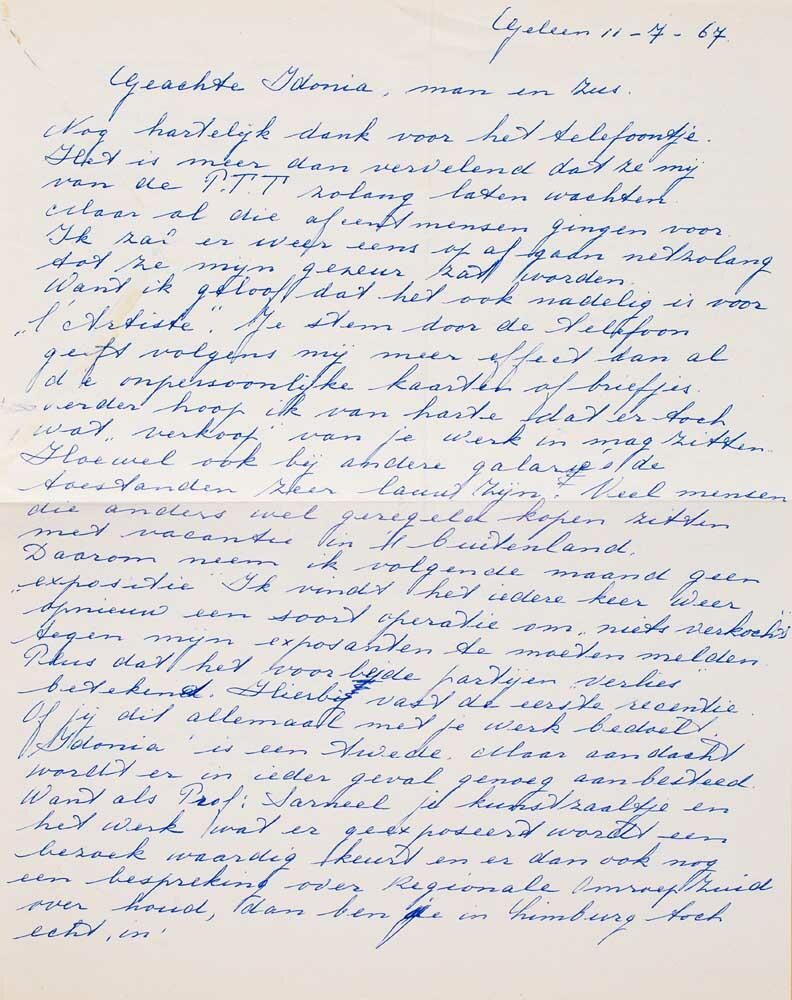 Geleen 11-7-67.
Geachte Idonia, man en Zus.
Nog hartelijk dank voor het telefoontje.
Het is meer dan vervelend dat ze mij
van de P.T.T zolang laten wachten.
Maar al die afcentmensen gingen voor.
Ik zal er weer eens op af gaan netzolang
tot ze mijn gezeur zat worden.
Want ik geloof dat het ook nadelig is voor
„l'Artiste". Je stem door de telefoon
geeft volgens mij meer effect dan al
die onpersoonlijke kaarten of briefjes.
verder hoop ik van harte dat er toch
wat „verkoop" van je werk in mag zitten.
Hoewel ook bij andere galarie's de
toestanden zeer lauw zijn. Veel mensen
die anders wel geregeld kopen zitten
met vacantie in 't buitenland.
Daarom neem ik volgende maand geen
„expositie" Ik vindt het iedere keer weer
opnieuw een soort operatie om „niets verkocht"
tegen mijn exposanten te moeten melden.
Plus dat het voor beide partijen „verlies"
betekend. Hierbij vast de eerste recentie.
Of jij dit allemaal met je werk bedoelt
'Idonia' is een twede. Maar aandacht
wordt er in ieder geval genoeg aanbesteed.
Want als Prof: Sarneel je kunstzaaltje en
het werk wat er geexposeerd wordt een
bezoek waardig keurt en er dan ook nog
een bespreking over Regionale Omroep Zuid
over houd, dan ben je in Limburg toch
echt 'in'